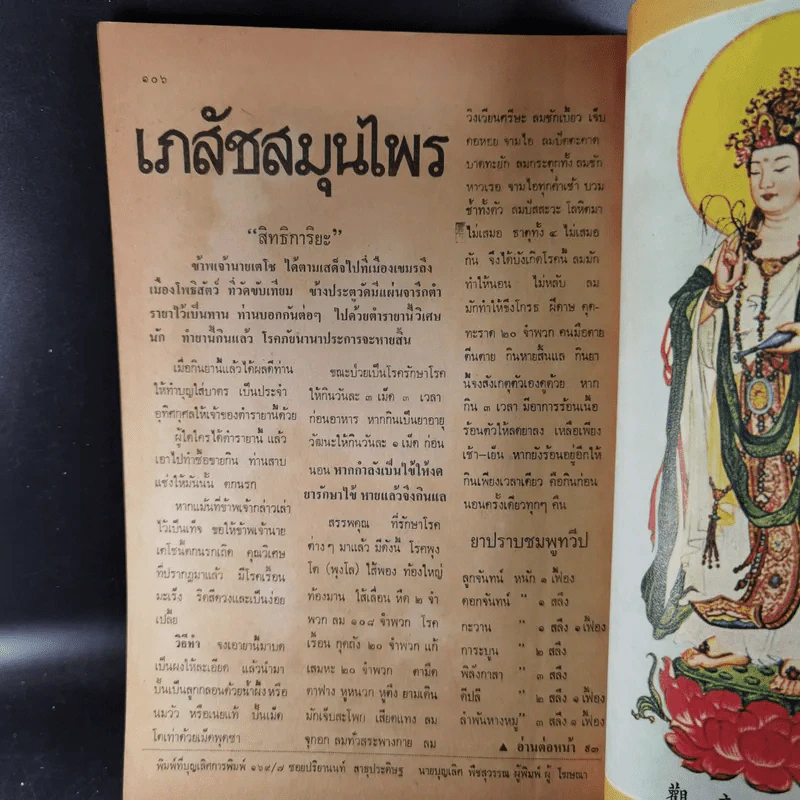 ๑๐๖
เภสัชสมุนไพร
“สิทธิการิยะ”
ข้าพเจ้านายเตโช ได้ตามเสด็จไปที่เมืองเขมรถึง
เมืองโพธิสัตว์ ที่วัดขับเทียม ข้างประตูวัดมีแผ่นจารึกตำ
รายาไว้เป็นทาน ท่านบอกกันต่อๆ ไปด้วยตำรายานี้วิเศษ
นัก ทำยานี้กินแล้ว โรคภัยนานาประการจะหายสิ้น
เมื่อกินยานี้แล้วได้ผลดีท่าน
ให้ทำบุญใส่บาตร เป็นประจำ
อุทิศกุศลให้เจ้าของตำรายานี้ด้วย
ผู้ใดใคร่ได้ตำรายานี้ แล้ว
เอาไปทำซื้อขายกิน ท่านสาบ
แช่งให้มันนั้น ตกนรก
หากแม้นที่ข้าพเจ้ากล่าวเล่า
ไว้เป็นเท็จ ขอให้ข้าพเจ้านาย
เตโชนี้ตกนรกเถิด คุณวิเศษ
ที่ปรากฏมาแล้ว มีโรคเรื้อน
มะเร็ง ริดสีดวงและเป็นง่อย
เปลี้ย
วิธีทำ จงเอายานี้มาบด
เป็นผงให้ละเอียด แล้วนำมา
ปั้นเป็นลูกกลอนด้วยน้ำผึ้งหรือ
นมวัว หรือเนยแท้ ปั้นเม็ด
โตเท่าด้วยเม็ดพุดซา
ขณะป่วยเป็นโรครักษาโรค
ให้กินวันละ ๓ เม็ด ๓ เวลา
ก่อนอาหาร หากกินเป็นยาอายุ
วัฒนะให้กินวันละ ๑ เม็ด ก่อน
นอน หากกำลังเป็นไข้ให้งด
ยารักษาไข้ หายแล้วจึงกินแล
สรรพคุณ ที่รักษาโรค
ต่างๆ มาแล้ว มีดังนี้ โรคพุง
โต (พุงโล) ไส้พอง ท้องใหญ่
ท้องมาน ไส้เลื่อน หืด ๒ จำ
พวก ลม ๑๐๘ จำพวก โรค
เรื้อน กุดถัง ๒๐ จำพวก แก้
เสมหะ ๒๐ จำพวก ตามืด
ตาฟาง หูหนวก หูตึง ยามเดิน
มักเจ็บสะโพก เสียดแทง ลม
จุกอก ลมทั่วสรรพางกาย ลม
วิงเวียนศรีษะ ลมชักเบี้ยว เจ็บ
คอหอย จามไอ ลมปัตตะคาด
บาดทะยัก ลมกระตุกทั้ง ลมชัก
หาวเรอ จามไอทุกค่ำเช้า บวม
ช้ำทั้งตัว ลมปัสสะวะ โลหิตมา
ไม่เสมอ ธาตุทั้ง ๔ ไม่เสมอ
กัน จึงได้บังเกิดโรคนี้ ลมมัก
ทำให้นอน ไม่หลับ ลม
มักทำให้ขึ้งโกรธ ฝีดาษ คุด-
ทะราด ๒๐ จำพวก คนมือตาย
ตีนตาย กินหายสิ้นแล กินยา
นี้จงสังเกตุตัวเองดูด้วย หาก
กิน ๓ เวลา มีอาการร้อนเนื้อ
ร้อนตัวให้ลดยาลง เหลือเพียง
เช้า-เย็น หากยังร้อนอยู่อีกให้
กินเพียงเวลาเดียว คือกินก่อน
นอนครั้งเดียวทุกๆ คืน
ยาปราบชมพูทวีป
ลูกจันทน์ หนัก ๑ เฟื้อง
ดอกจันทน์ ” ๑ สลึง
กะวาน ” ๑ สลึง ๑ เฟื้อง
การะบูน ” ๒ สลึง
พิลังกาสา ” ๓ สลึง
ดีปลี ” ๒ สลึง ๑ เฟื้อง
ลำพันหางหมู ” ๓ สลึง ๑ เฟื้อง
▲ อ่านต่อหน้า ๙๓
พิมพ์ที่บุญเลิศการพิมพ์ ๑๖๙/๗ ซอยปริยานนท์ สาธุประดิษฐ นายบุญเลิศ พืชสุวรรณ ผู้พิมพ์ ผู้โฆษณา
觀